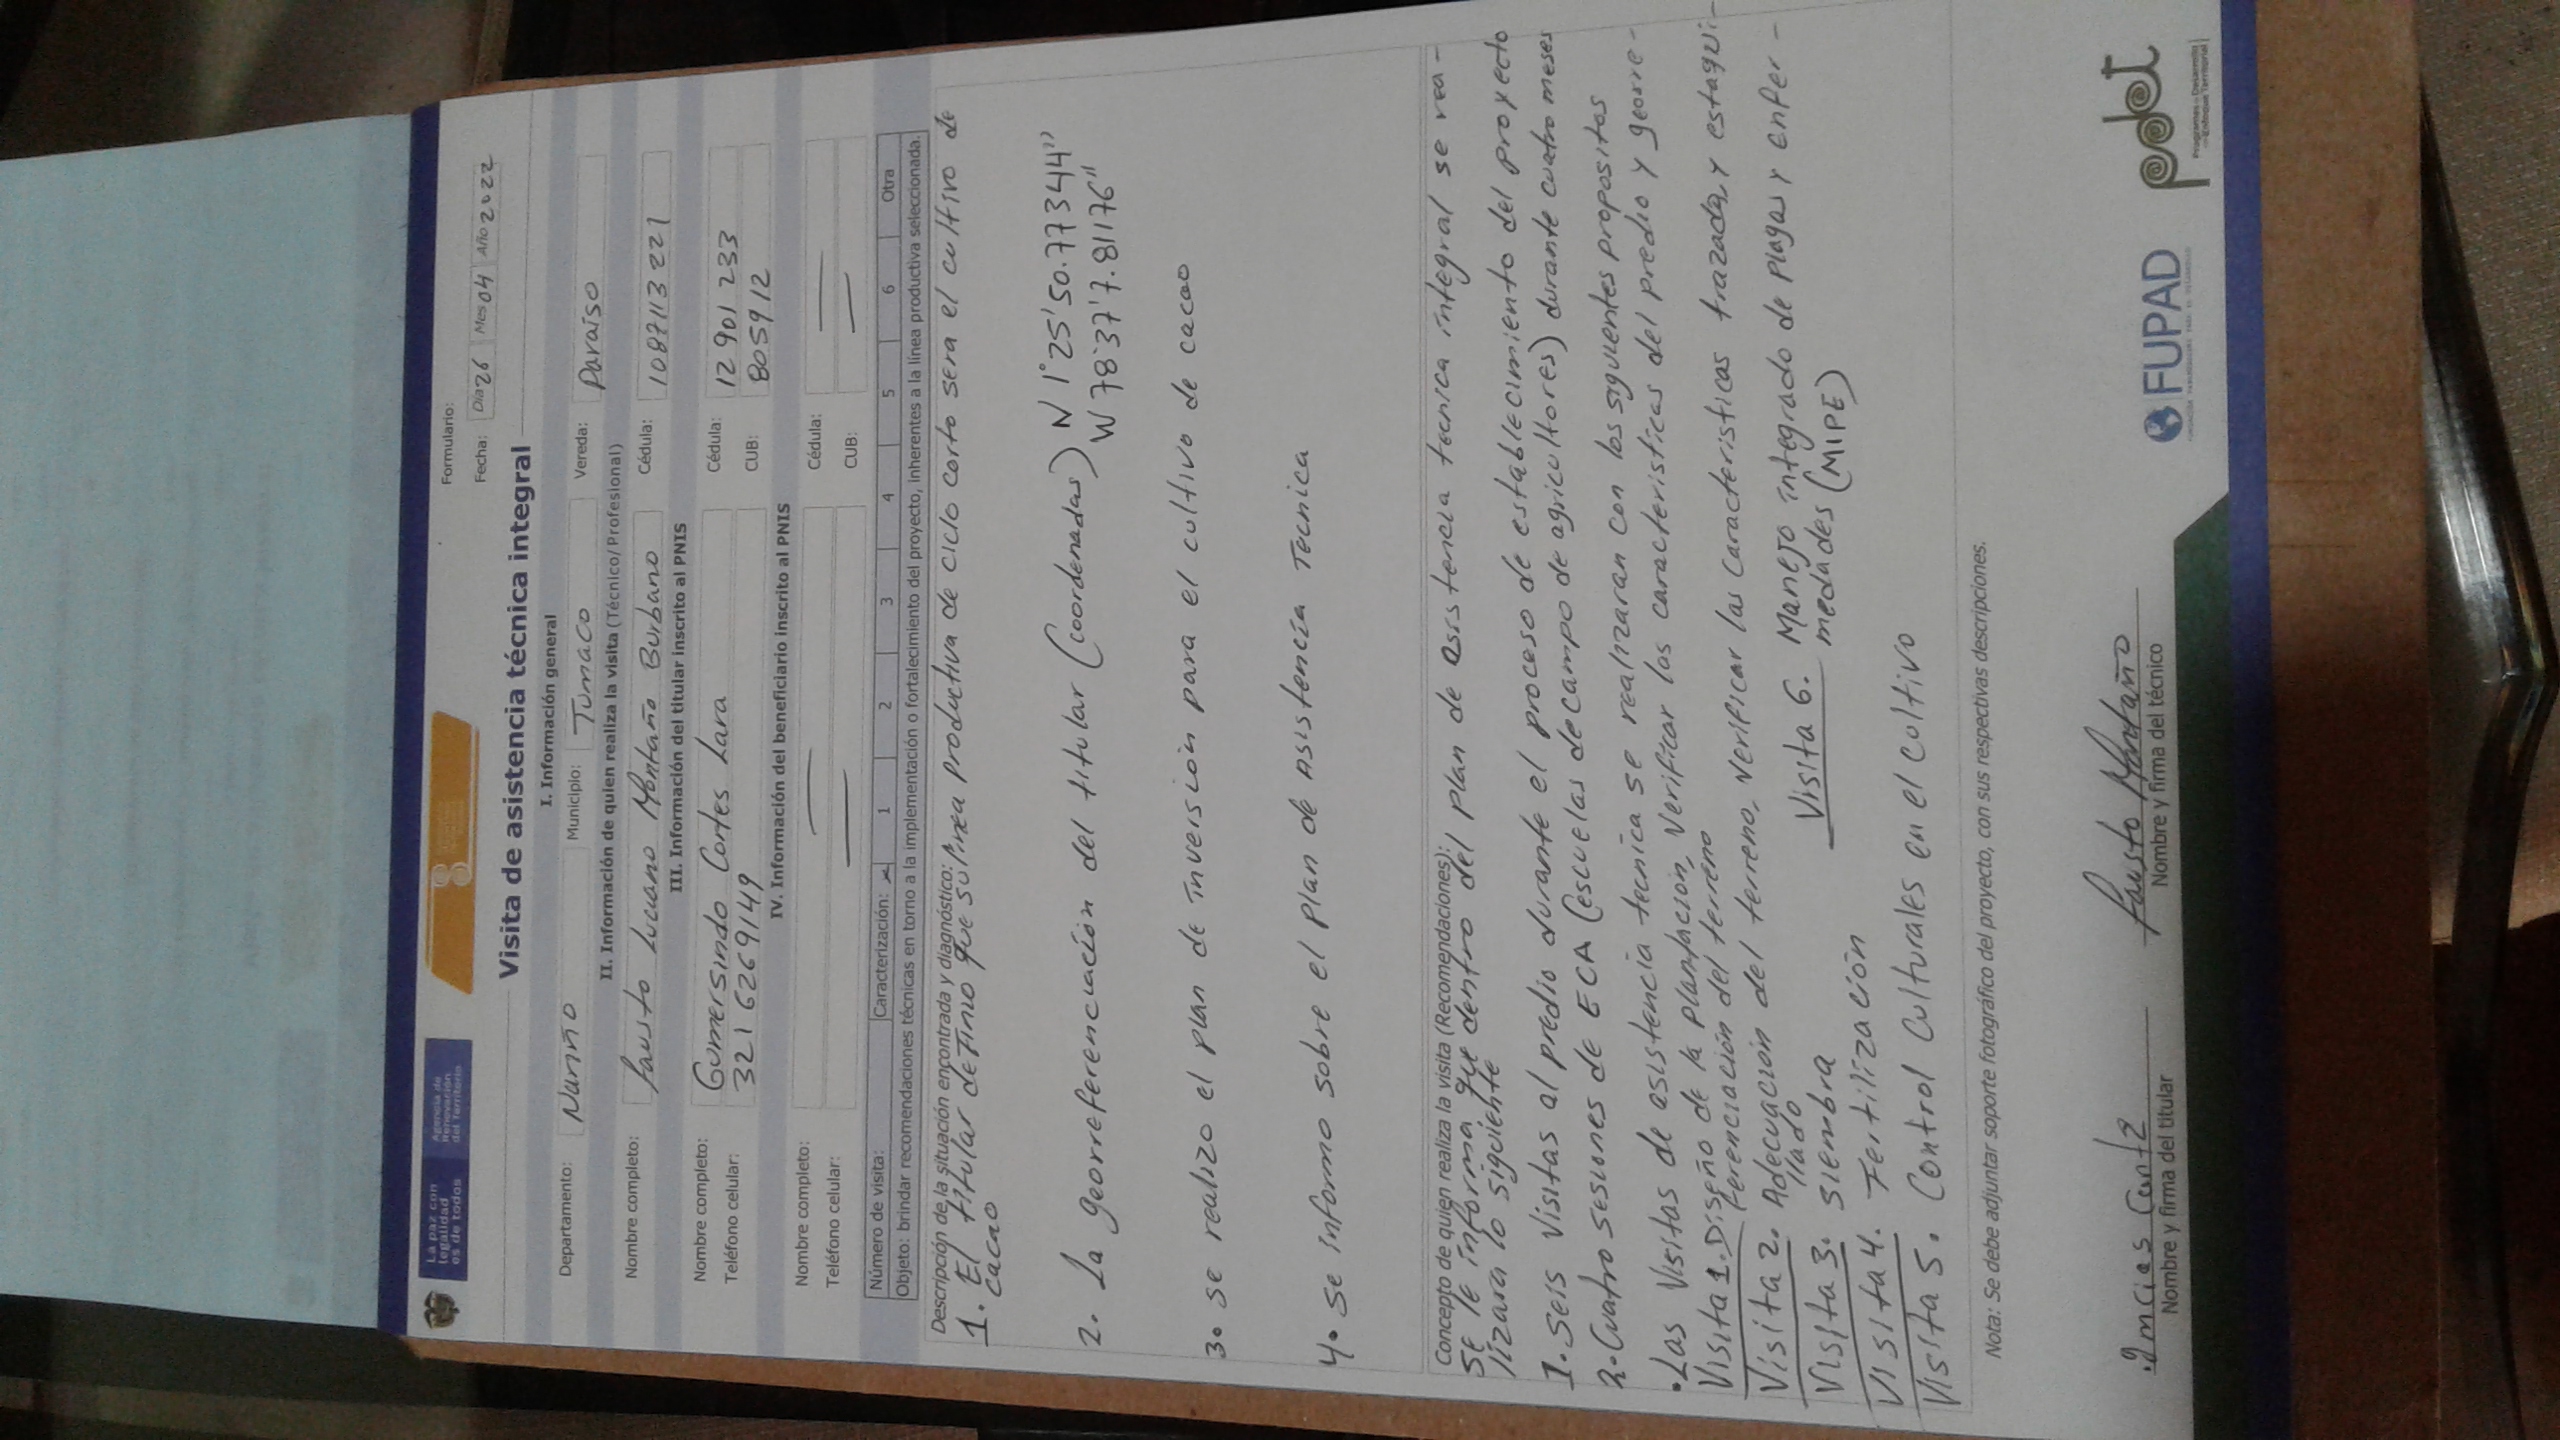 La paz con
legalidad
es de todos
Agencia de
Renovación
del Territorio
Formulario:
Fecha: Día 26 Mes 04 Año 2022
Visita de asistencia técnica integral
I. Información general
Departamento: Nariño Municipio: Tumaco Vereda: Paraiso
II. Información de quien realiza la visita (Técnico/Profesional)
Nombre completo: Fausto Luciano Montaño Burbano Cédula: 1087113221
III. Información del titular inscrito al PNIS
Nombre completo: Gumersindo Cortes Lara Cédula: 12 901 233
Teléfono celular: 321 6269149 CUB: 805912
IV. Información del beneficiario inscrito al PNIS
Nombre completo: — Cédula: —
Teléfono celular: — CUB: —
Número de visita: Caracterización: x 1 2 3 4 5 6 Otra
Objeto: brindar recomendaciones técnicas en torno a la implementación o fortalecimiento del proyecto, inherentes a la línea productiva seleccionada.
Descripción de la situación encontrada y diagnóstico:
1. El titular definio que su linea productiva de ciclo corto sera el cultivo de
cacao
2. La georreferenciación del titular (coordenadas) N 1°25'50.77344"
W 78°37'7.81176"
3. se realizo el plan de inversión para el cultivo de cacao
4. se informo sobre el plan de asistencia Tecnica
Concepto de quien realiza la visita (Recomendaciones):
Se le informa que dentro del plan de asistencia tecnica integral se rea-
lizara lo siguiente
1. Seis visitas al predio durante el proceso de establecimiento del proyecto
2. Cuatro sesiones de ECA (escuelas de campo de agricultores) durante cuatro meses
• Las visitas de asistencia tecnica se realizaran con los siguientes propositos
Visita 1. Diseño de la plantación, Verificar las caracteristicas del predio y georre-
ferenciación del terreno
Visita 2. Adecuación del terreno, verificar las caracteristicas trazadas y estaqui-
llado
Visita 3. siembra
Visita 4. Fertilización
Visita 5. Control culturales en el cultivo
Visita 6. Manejo integrado de plagas y enfer-
medades (MIPE)
Nota: Se debe adjuntar soporte fotográfico del proyecto, con sus respectivas descripciones.
Nombre y firma del titular
Fausto Montaño
Nombre y firma del técnico
FUPAD
pdet
Programas de Desarrollo
con Enfoque Territorial